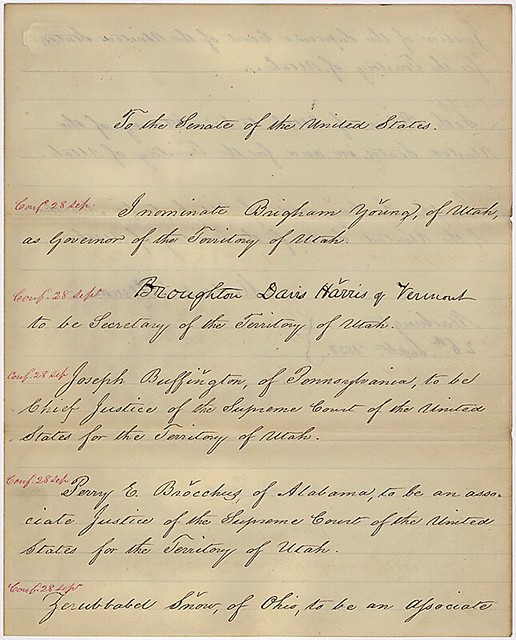 To the Senate of the United States.
Conf. 28 Sep.
I nominate Brigham Young, of Utah,
as Governor of the Territory of Utah.
Conf. 28 Sep
Broughton Davis Harris of Vermont
to be Secretary of the Territory of Utah.
Conf. 28 Sep
Joseph Buffington, of Pennsylvania, to be
Chief Justice of the Supreme Court of the United
States for the Territory of Utah.
Conf. 28 Sep
Perry E. Brocchus of Alabama, to be an asso-
ciate Justice of the Supreme Court of the United
States for the Territory of Utah.
Conf. 28 Sep
Zerubbabel Snow, of Ohio, to be an Associate